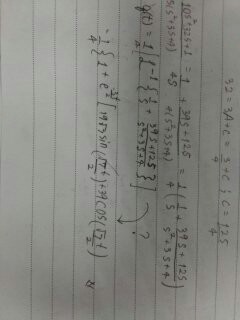 32 = 3A + C = 3/4 + C } C = 125/4
10s²+32s+1 / s(s²+3s+4) = 1/4s + 39s+125 / 4(s²+3s+4) = 1/4 (1/s + 39s+125 / s²+3s+4)
y(t) = 1/4 [ℒ⁻¹ { 1/s + 39s+125 / s²+3s+4 }] ?
= 1/4 { 1 + [ sin(√7t/2) + 39 cos(√7/2 t)